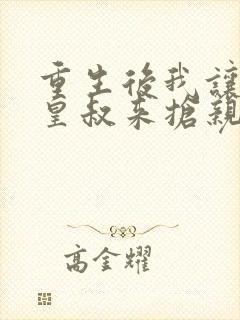 重生後我讓
皇叔來搶親
高金耀